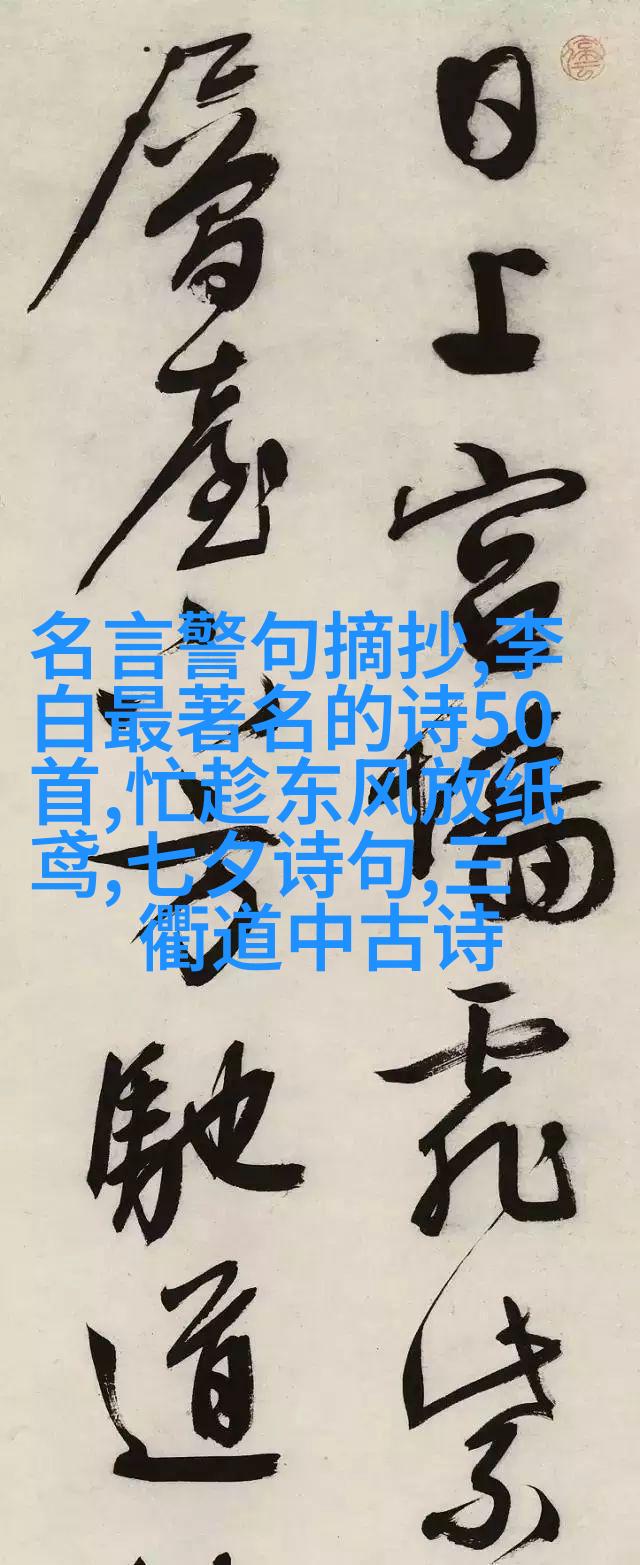 日上宮墻霏紫
層臺下方馳道
名言警句摘抄,李
白最著名的诗50
首,忙趁东风放纸
鸢,七夕诗句,三
衢道中古诗